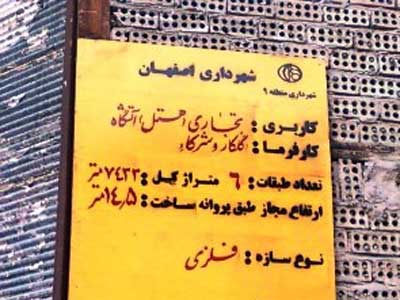 شهرداری اصفهان
شهرداری منطقه ۹
کاربری : تجاری (هتل) آتشگاه
کارفرما : گلکار و شرکاء
تعداد طبقات : ۶ متراژ کل : ۷۴۳۳ متر
ارتفاع مجاز طبق پروانه ساخت : ۱۴٫۵ متر
نوع سازه : فلزی